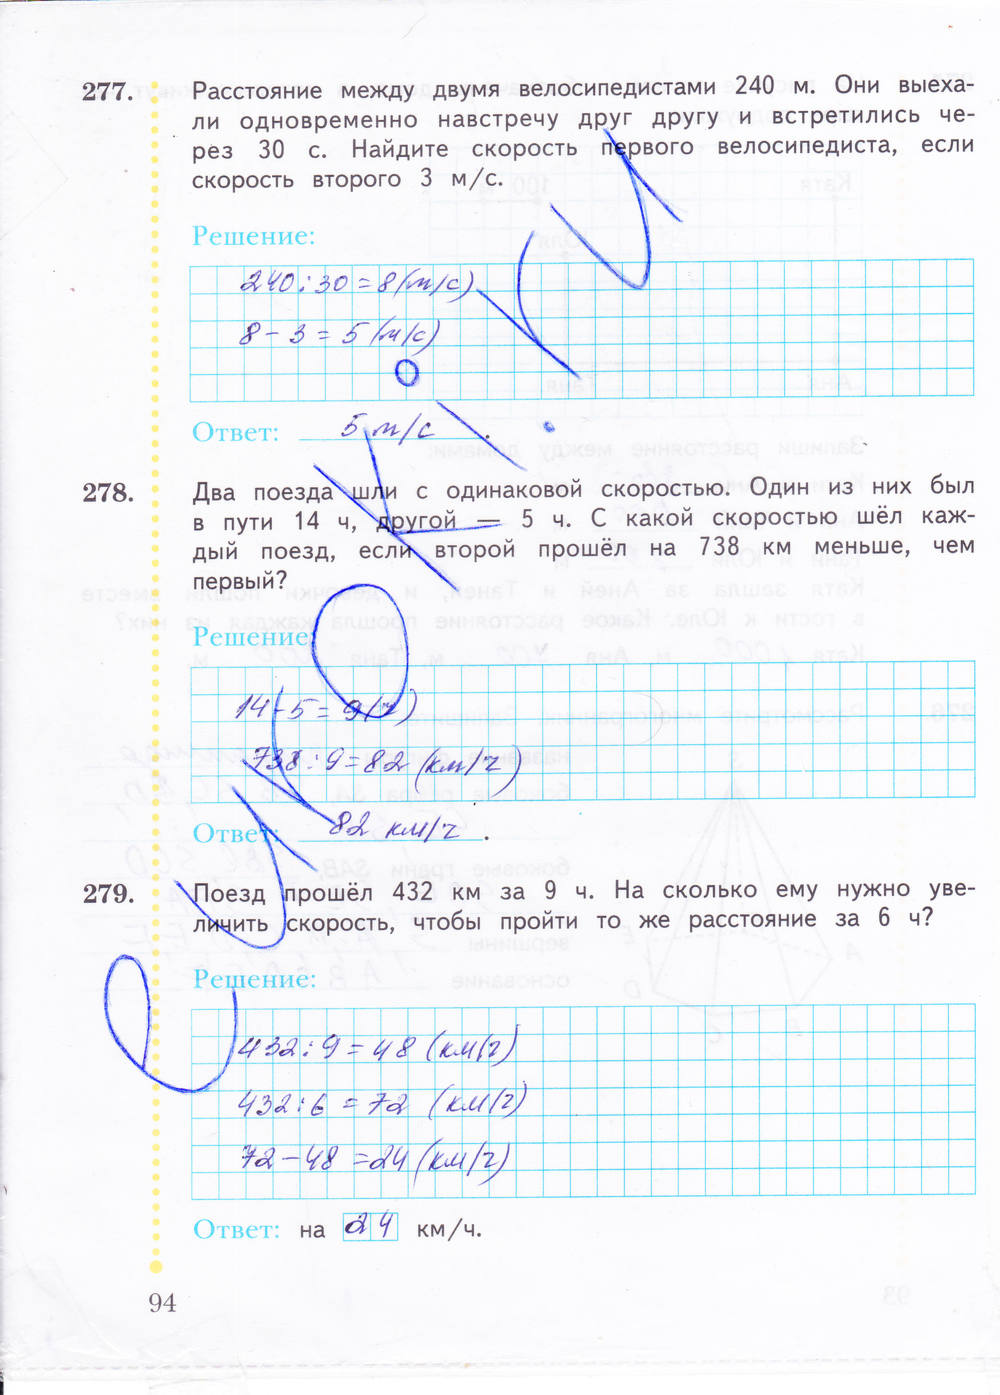 277. Расстояние между двумя велосипедистами 240 м. Они выеха-
ли одновременно навстречу друг другу и встретились че-
рез 30 с. Найдите скорость первого велосипедиста, если
скорость второго 3 м/с.
Решение:
240:30=8(м/с)
8-3=5(м/с)
Ответ: 5 м/с.
278. Два поезда шли с одинаковой скоростью. Один из них был
в пути 14 ч, другой — 5 ч. С какой скоростью шёл каж-
дый поезд, если второй прошёл на 738 км меньше, чем
первый?
Решение:
14-5=9(ч)
738:9=82(км/ч)
Ответ: 82 км/ч.
279. Поезд прошёл 432 км за 9 ч. На сколько ему нужно уве-
личить скорость, чтобы пройти то же расстояние за 6 ч?
Решение:
432:9=48(км/ч)
432:6=72(км/ч)
72-48=24(км/ч)
Ответ: на 24 км/ч.
94